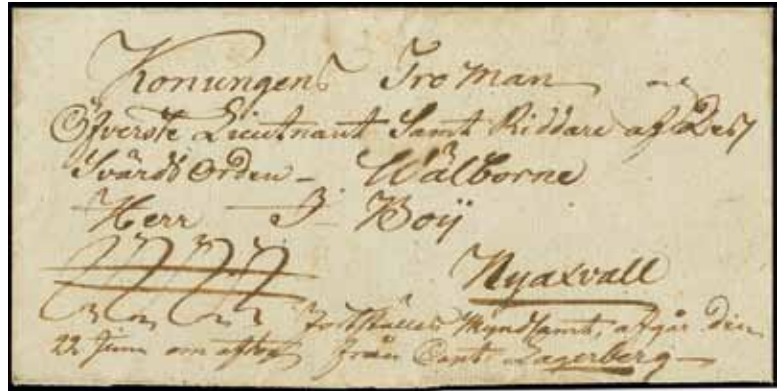 Konungens Tro Man och
Öfverste Lieutnant Samt Riddare af Des
Svärds Orden - Wälborne
Herr J Boij
Nyaxvall
afgår den
22 Juni om afton från Capt Lagerberg